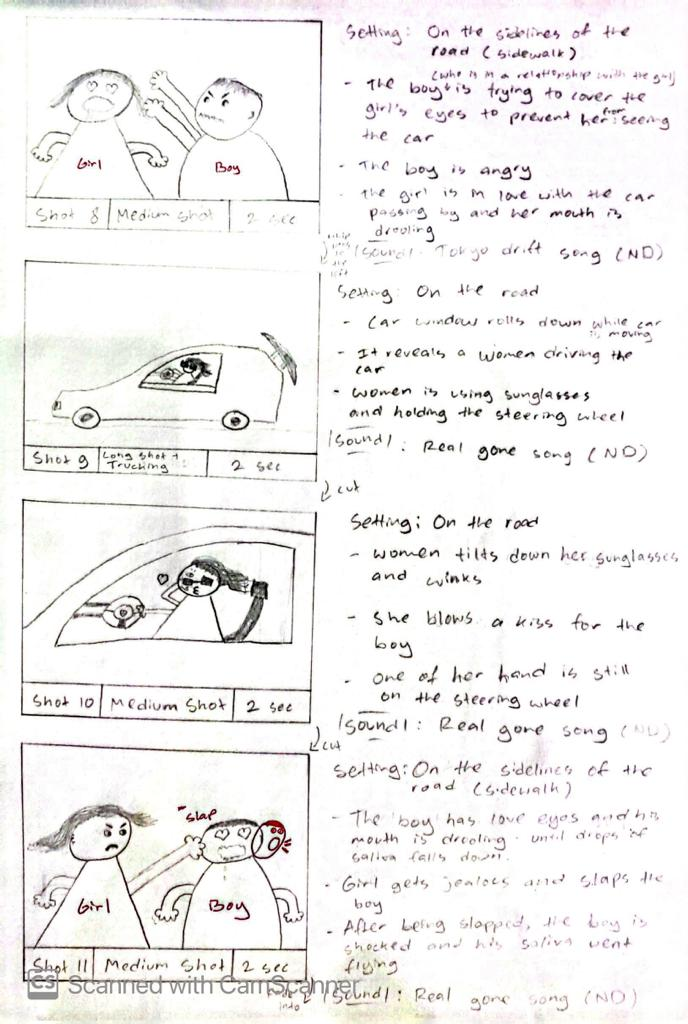 Setting: On the sidelines of the
road (sidewalk)
(who is in a relationship with the girl)
- The boy is trying to cover the
girl's eyes to prevent her from seeing
the car
- The boy is angry
- The girl is in love with the car
passing by and her mouth is
drooling
/Sound/: Tokyo drift song (ND)
Girl
Boy
Shot 8 | Medium Shot | 2 sec
Setting: On the road
- Car window rolls down while car
is moving
- It reveals a women driving the
car
- women is using sunglasses
and holding the steering wheel
/Sound/: Real gone song (ND)
Shot 9 | Long shot + Trucking | 2 sec
cut
Setting: On the road
- women tilts down her sunglasses
and winks
- She blows a kiss for the
boy
- One of her hand is still
on the steering wheel
/Sound/: Real gone song (ND)
Shot 10 | Medium Shot | 2 sec
cut
Setting: On the sidelines of the
road (sidewalk)
- The boy has love eyes and his
mouth is drooling until drops of
saliva falls down.
- Girl gets jealous and slaps the
boy
- After being slapped, the boy is
shocked and his saliva went
flying
/Sound/: Real gone song (ND)
slap
Girl
Boy
Shot 11 | Medium Shot | 2 sec
CS Scanned with CamScanner